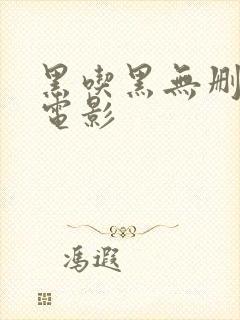 黑喫黑無删
電影
馮遐